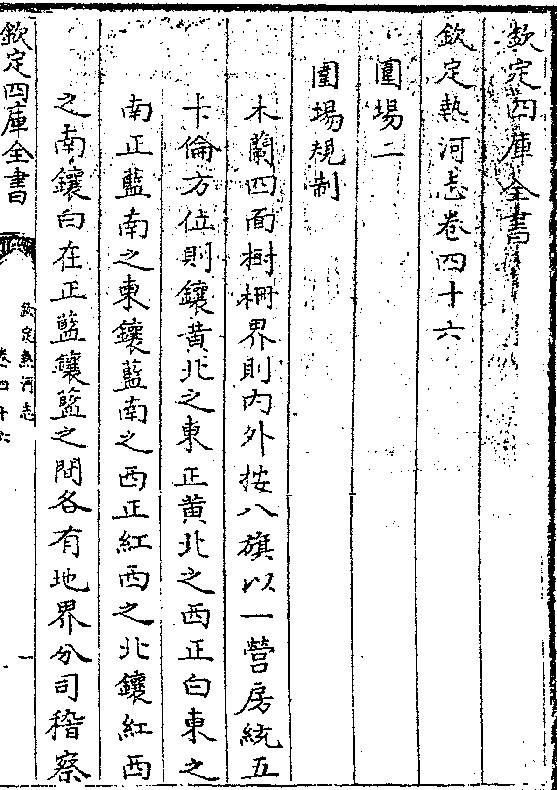 欽定四庫全書
欽定熱河志卷四十六
圍場二
圍場規制
木蘭四面樹柵界則內外按八旗以一營房統五
卡倫方位則鑲黃北之東正黃北之西正白東之
南正藍南之東鑲藍南之西正紅西之北鑲紅西
之南鑲白在正藍鑲藍之間各有地界分司稽察
欽定四庫全書
欽定熱河志
卷四十六
一